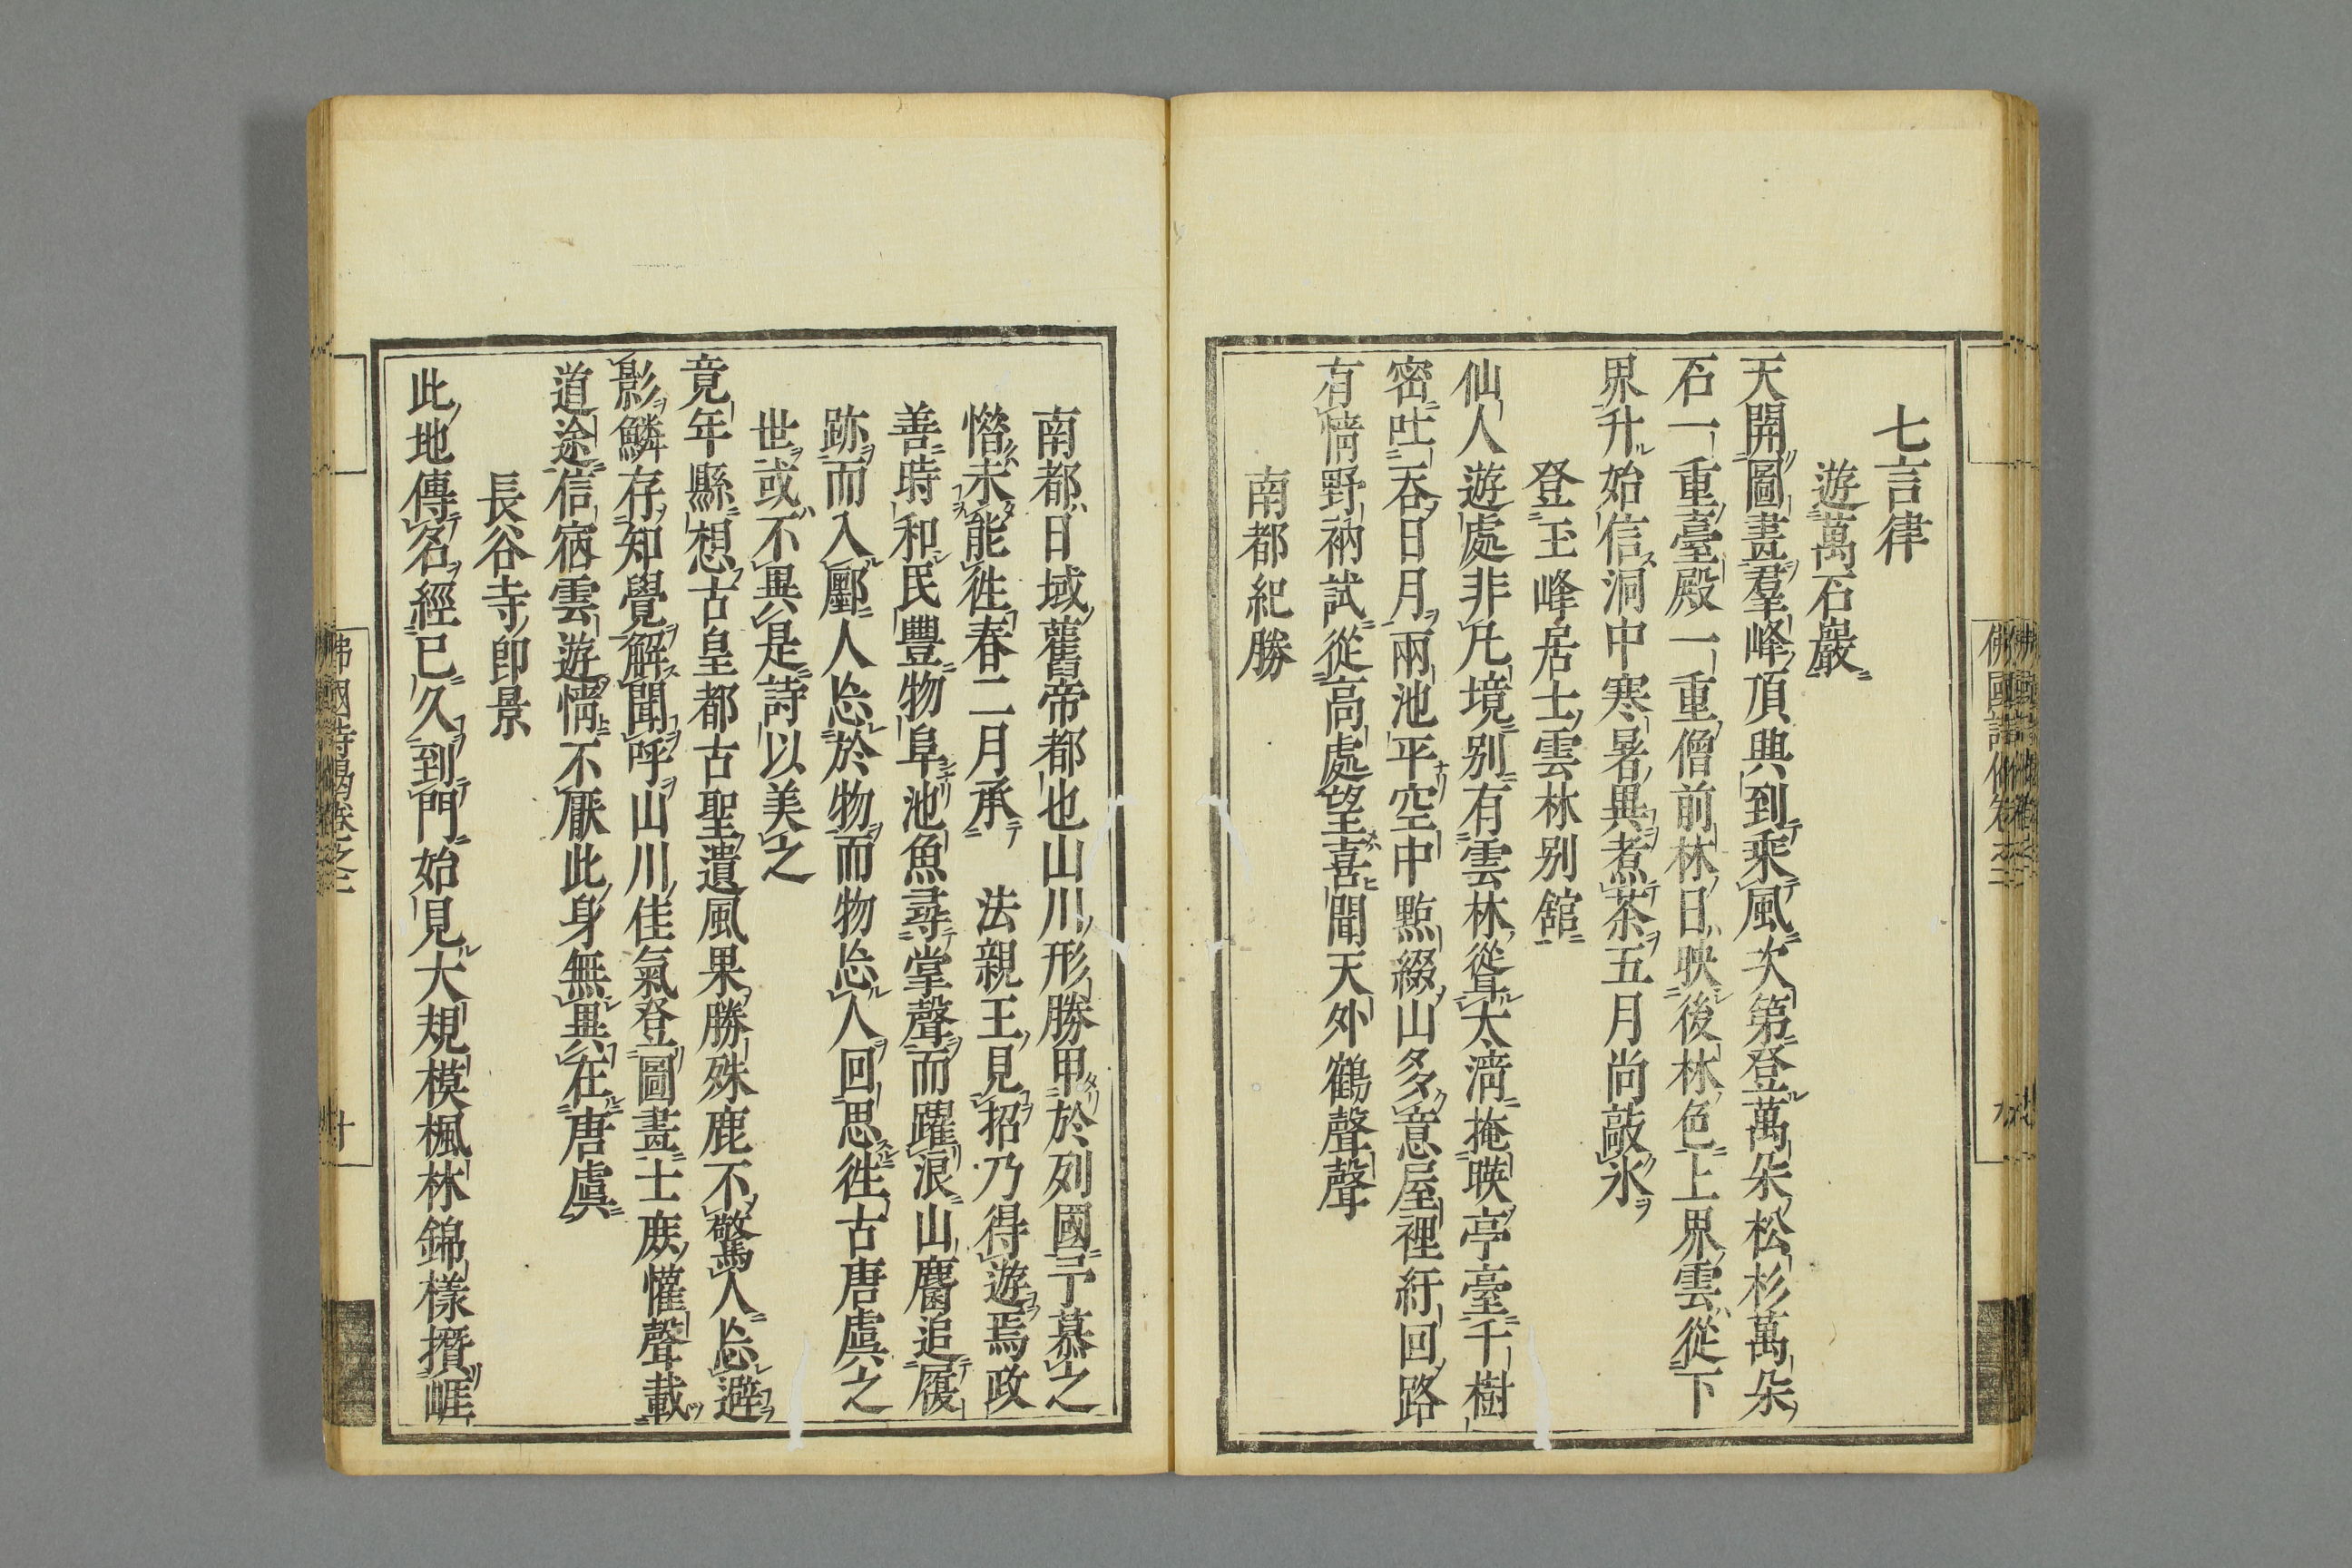 七言律
遊萬石巖
天開圖畫羣峰頂興到乘風次第登萬朵松杉萬朵
石一重臺殿一重僧前林日映後林色上界雲從下
界升始信洞中寒暑異煮茶五月尚敲氷
登玉峰居士雲林別舘
仙人遊處非凡境別有雲林聳太淸掩暎亭臺千樹
密吐吞日月兩池平空中點綴山多意屋裡紆回路
有情野衲試從高處望喜聞天外鶴聲聲
南都紀勝
南都日域舊帝都也山川形勝甲於列國予慕之
憯未能徃春二月承 法親王見招乃得遊焉政
善時和民豐物阜池魚尋掌聲而躍浪山麕追履
跡而入郾人忘於物而物忘人回思徃古唐虞之
世或不異是詩以美之
竟年縣想古皇都古聖遺風果勝殊鹿不驚人忘避
影鱗存知覺解聞呼山川佳氣登圖畫士庶懽聲載
道途信宿雲遊情不厭此身無異在唐虞
長谷寺即景
此地傳名經已久到門始見大規模楓林錦樣攢崕
佛國詩偈卷之二
九
佛國詩偈卷之二
十